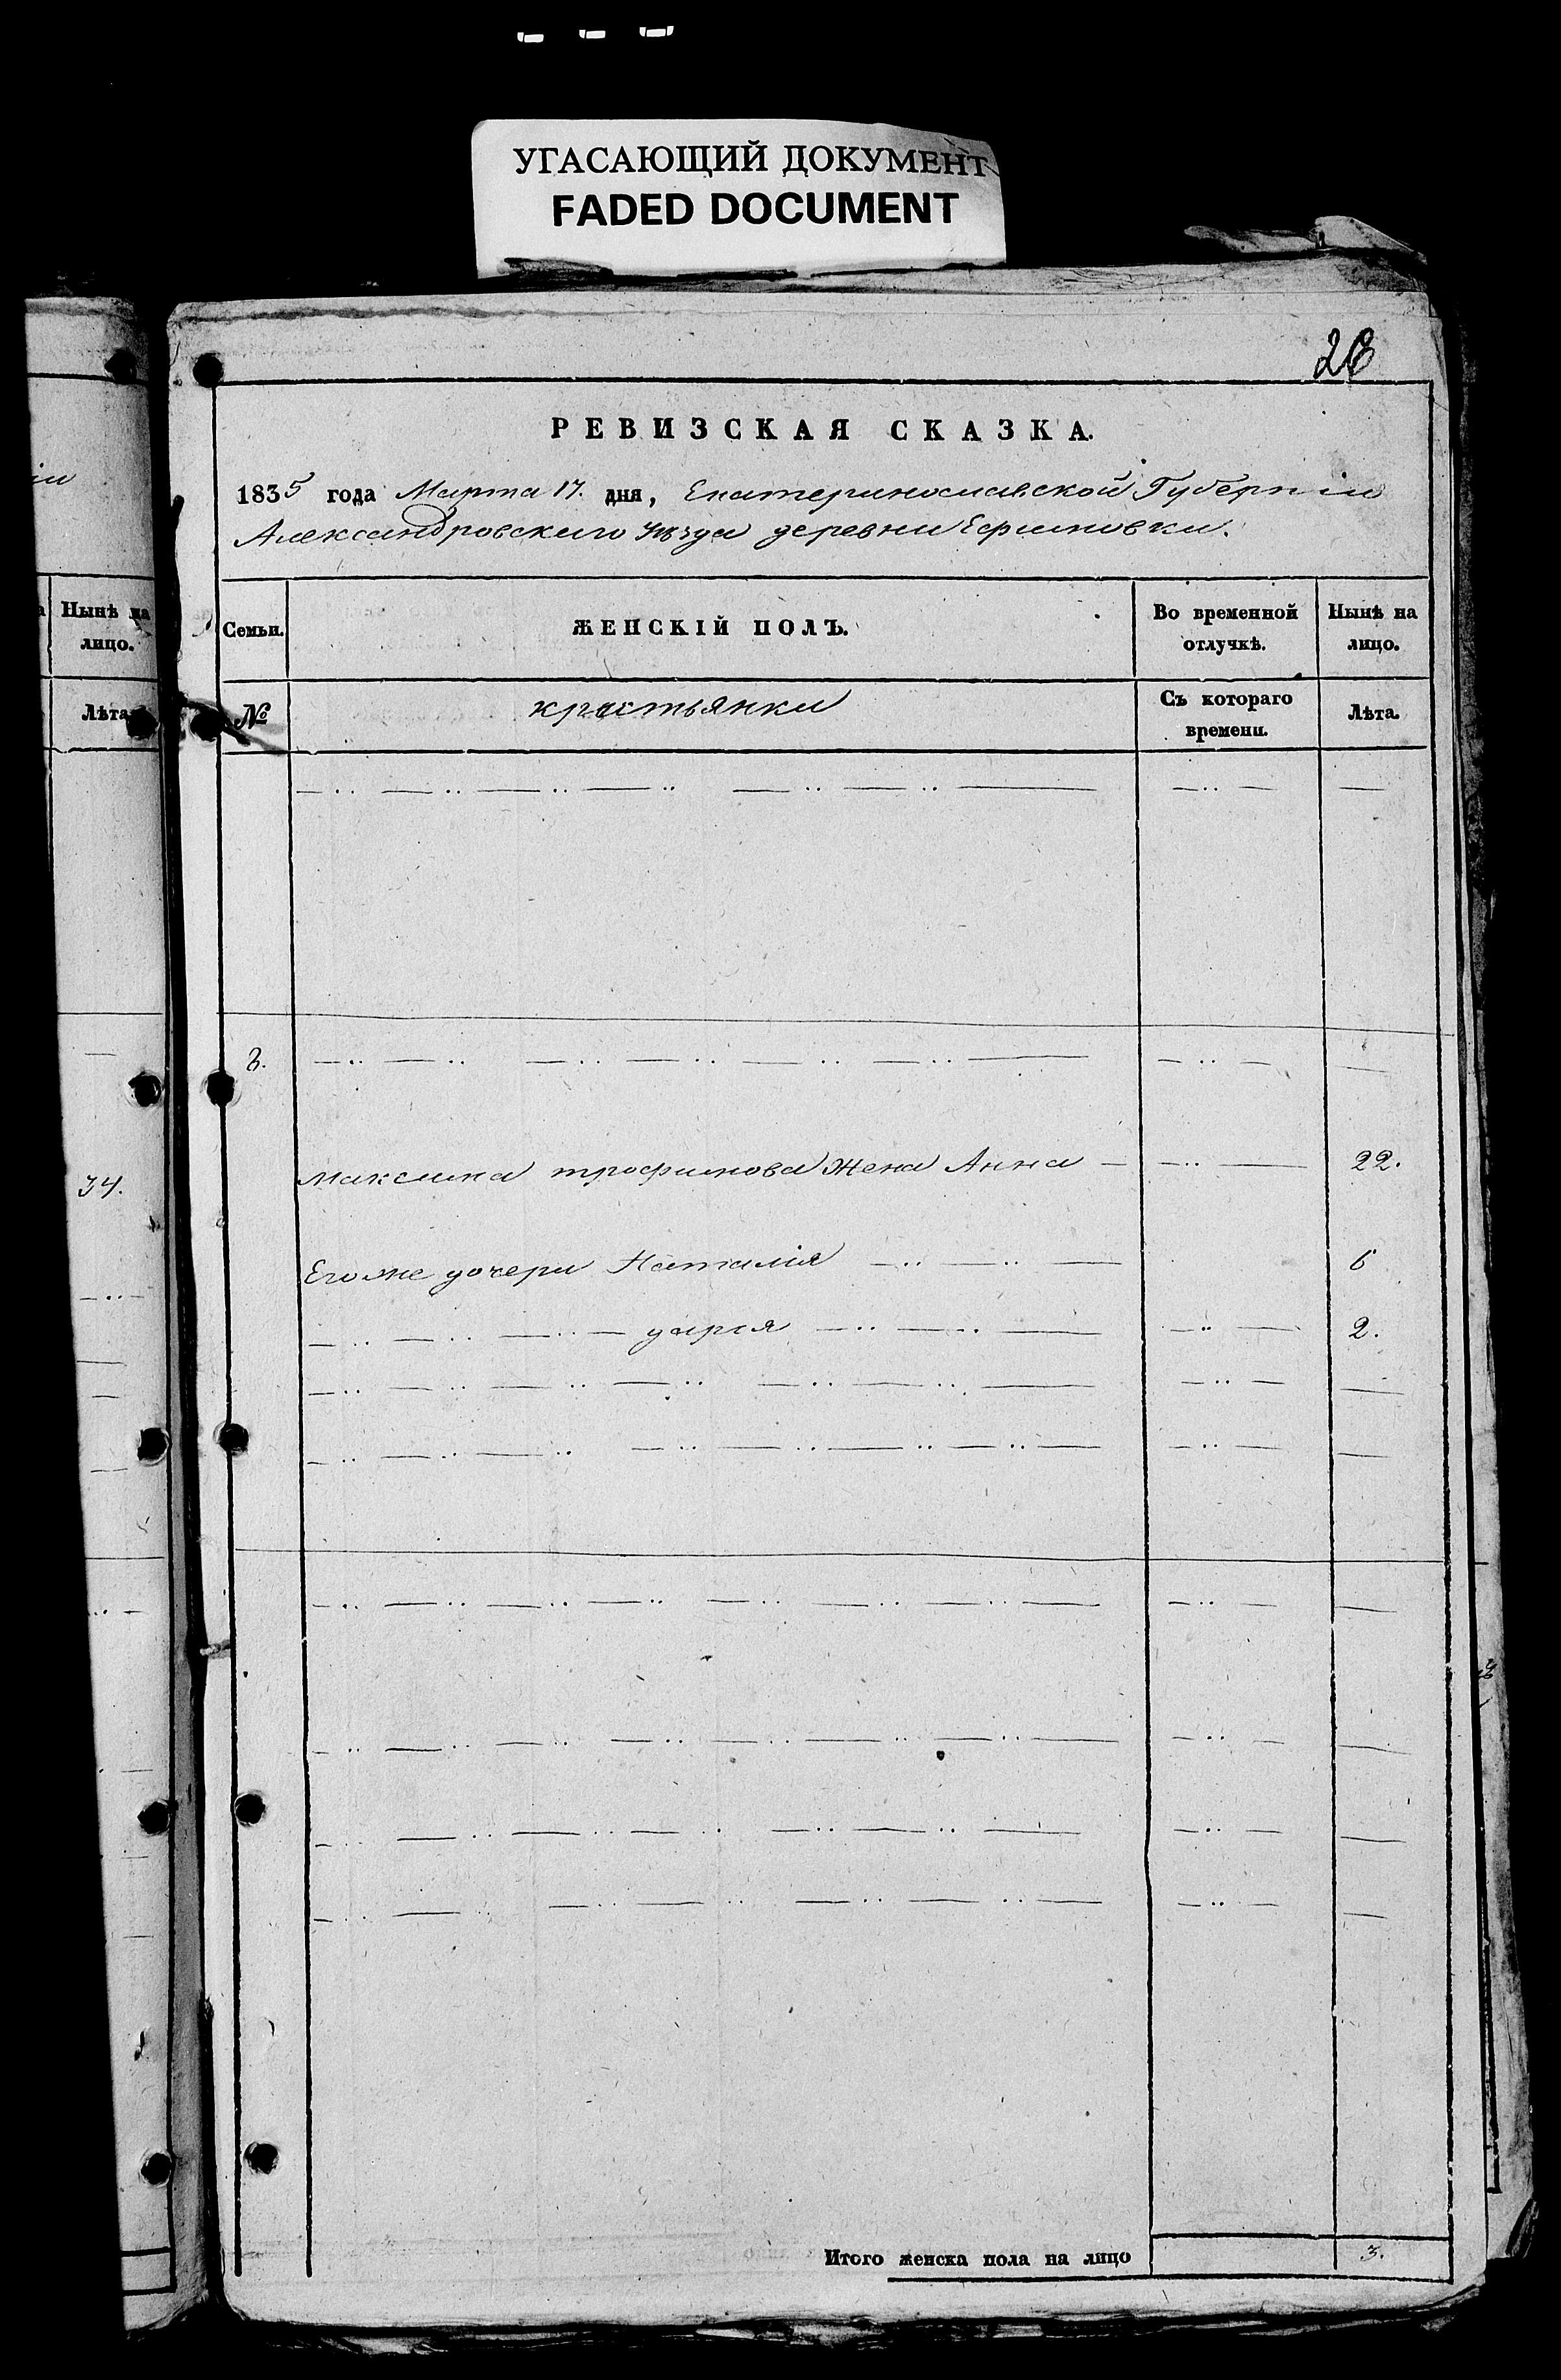 УГАСАЮЩИЙ ДОКУМЕНТ
FADED DOCUMENT
РЕВИЗСКАЯ СКАЗКА.
1835 года Марта 17. дня, Екатеринославской Губерніи
Александровскаго уѣзда деревни Ефимовки.
Нынѣ на
лицо.
Лѣта
34.
Семьи. ЖЕНСКІЙ ПОЛЪ. Во временной отлучкѣ. Нынѣ на лицо.
№ крестьянки Съ котораго времени. Лѣта.
8.
Максима трофимова Жена Анна 22.
Его же дочери Наталія 6
дарія 2.
Итого женска пола на лицо 3.